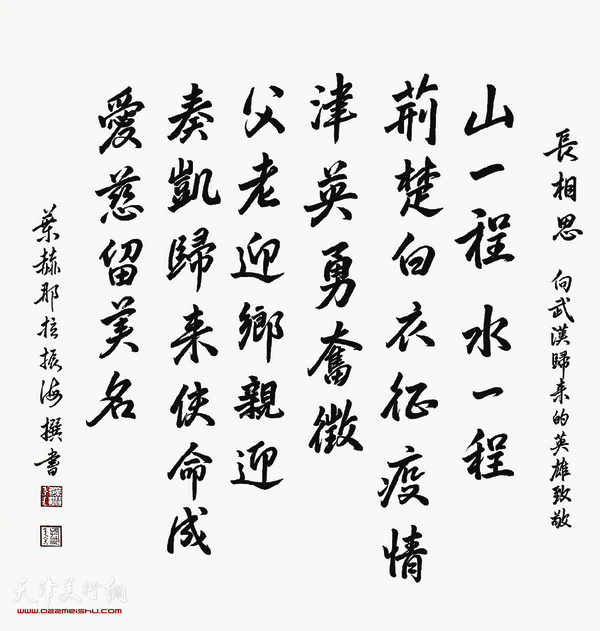 長相思 向武漢歸来的英雄致敬
山一程水一程
荊楚白衣征疫情
津英勇奮徵
父老迎鄉親迎
奏凱歸来使命成
愛慈留美名
葉赫那拉振海撰書
天津美術網
www.022meishu.com